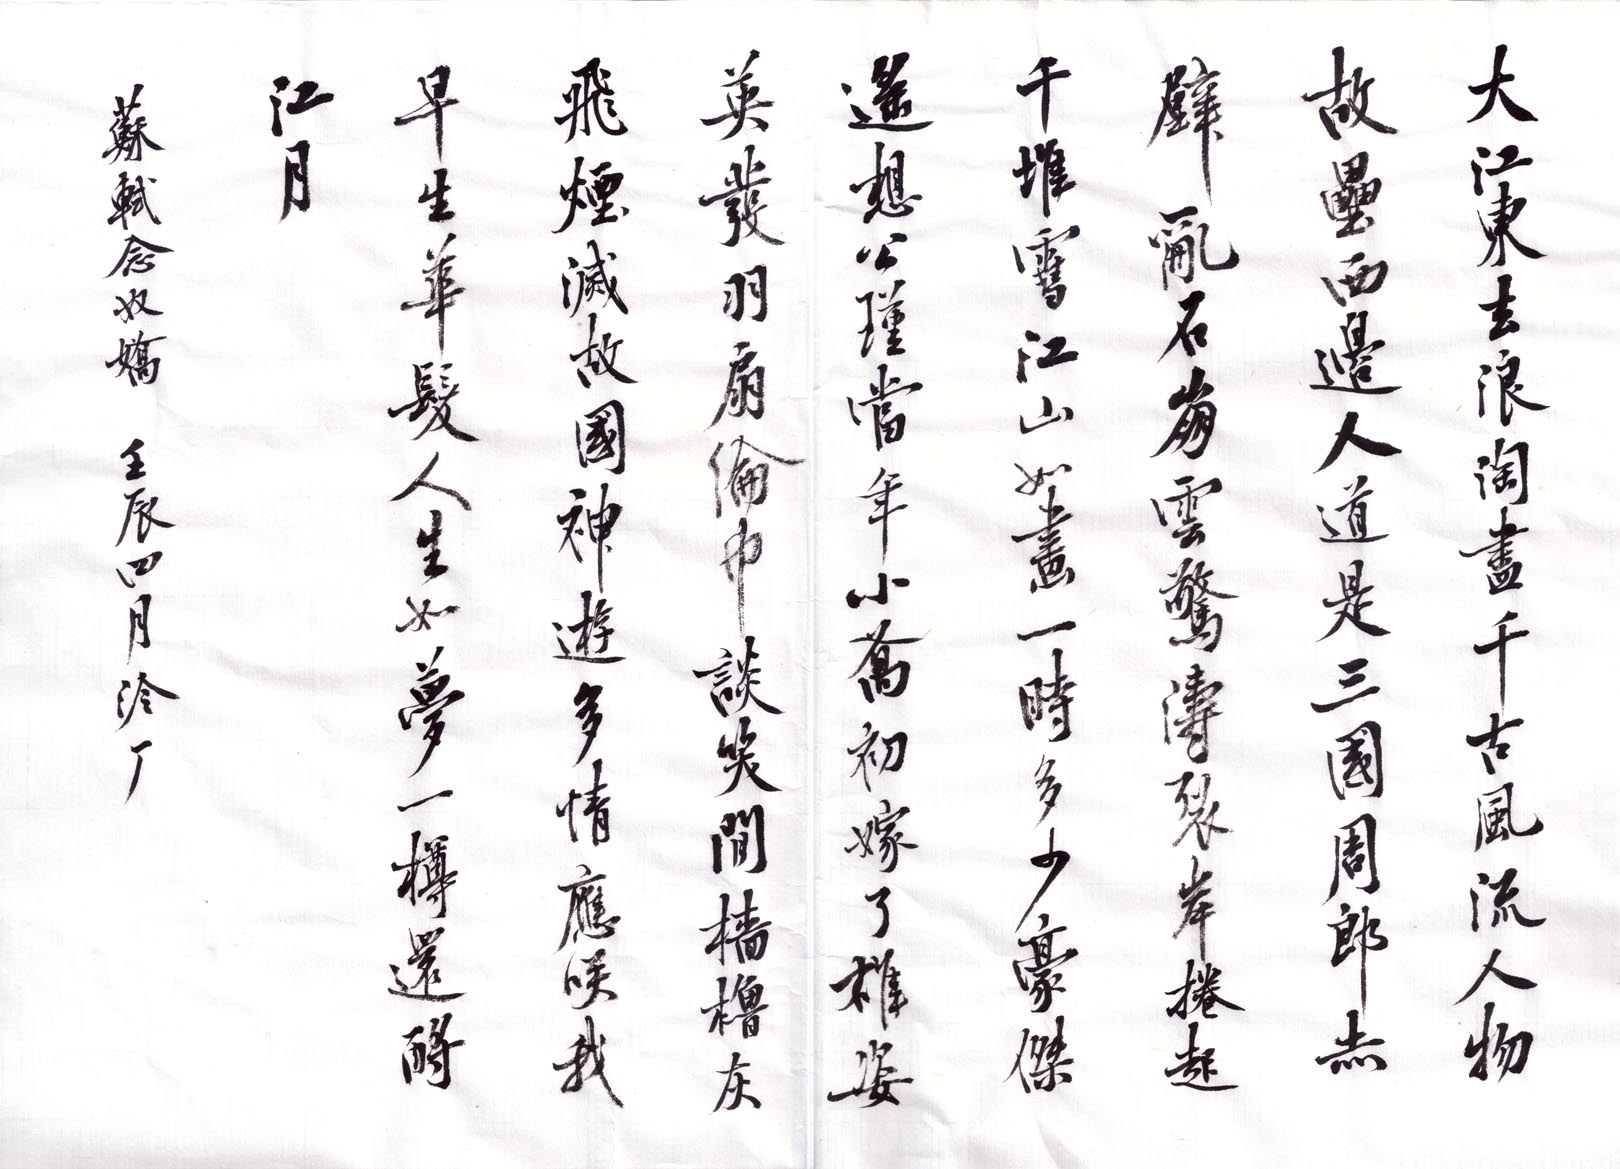 大江東去浪淘盡千古風流人物
故壘西邊人道是三國周郎赤
壁亂石崩雲驚濤裂岸捲起
千堆雪江山如畫一時多少豪傑
遙想公瑾當年小喬初嫁了雄姿
英發羽扇綸巾談笑間檣櫓灰
飛煙滅故國神遊多情應咲我
早生華髮人生如夢一樽還酹
江月
蘇軾念奴嬌 壬辰四月泠厂